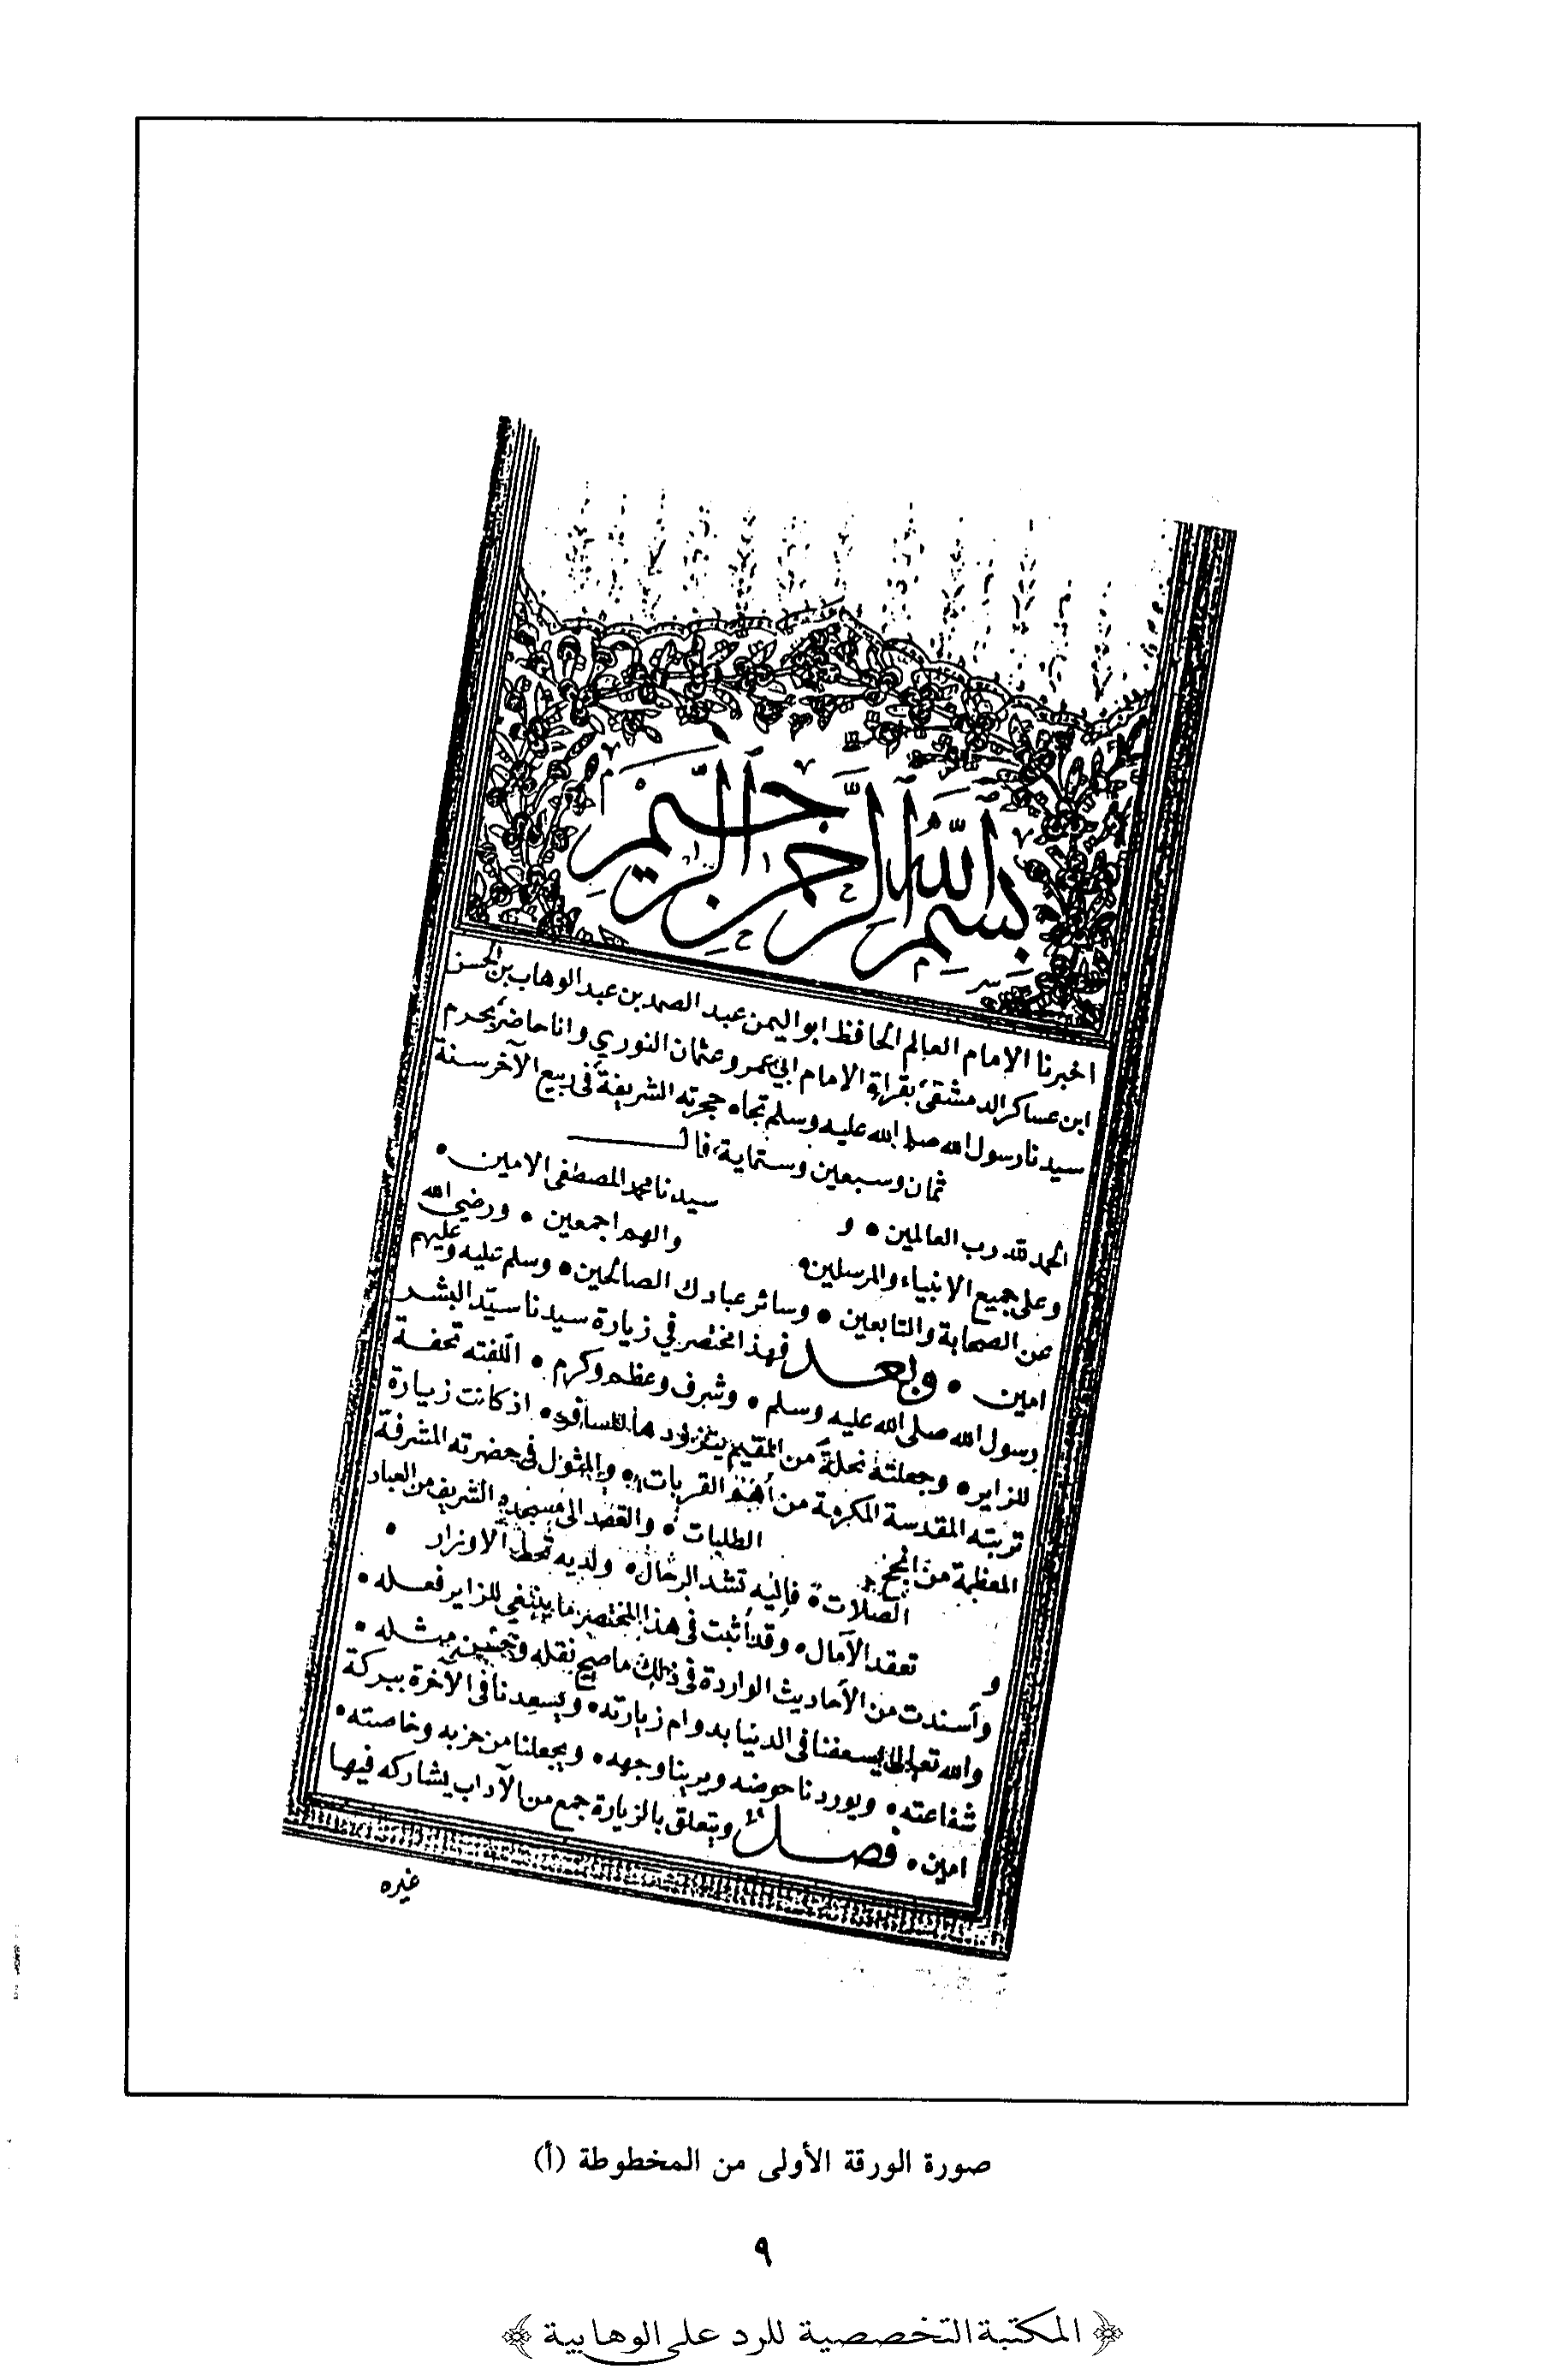 بسم الله الرحمن الرحيم
اخبرنا الإمام العالم الحافظ ابو اليمن عبد الصمد بن عبد الوهاب بن الحسن
ابن عساكر الدمشقي بقراة الامام ابي عمرو عثمان النوري وانا حاضر بحرم
سيدنا رسول الله صلى الله عليه وسلم تجاه حجرته الشريفة في ربيع الآخر سنة
ثمان وسبعين وستماية، قال
الحمد لله رب العالمين • و سيدنا محمد المصطفى الامين •
وعلى جميع الانبياء والمرسلين • والهم اجمعين • ورضي الله
عن الصحابة والتابعين • وسائر عبادك الصالحين • وسلم عليه وعليهم
امين • وبعد فهذا مختصر في زيارة سيدنا سيّد البشر
رسول الله صلى الله عليه وسلم • وشرف وعظم وكرم • الّفته تحفة
للزاير • وجعلته نحلة من المقيم يتزود بها المسافر • اذ كانت زيارة
تربته المقدسة المكرمة من القربات • والمثول في حضرته المشرفة
المعظمة من انجح الطلبات • والقصد الى مسجده الشريف من العباد
الصلات • فإليه تشد الرحال • ولديه تحط الاوزار •
و تعقد الآمال • وقد أثبت في هذا المختصر ما ينبغي للزاير فعله •
وأسندت من الأحاديث الواردة في ذلك ما صح نقله مثله •
والله تعالى يسعفنا في الدنيا بدوام زيارته • ويسعدنا في الآخرة ببركة
شفاعته • ويوردنا حوضه ويرينا وجهه • ويجعلنا من حزبه وخاصته •
امين • فصل ويتعلق بالزيارة جمع من الآداب يشاركه فيها
غيره
صورة الورقة الأولى من المخطوطة (أ)
٩
المكتبة التخصصية للرد على الوهابية